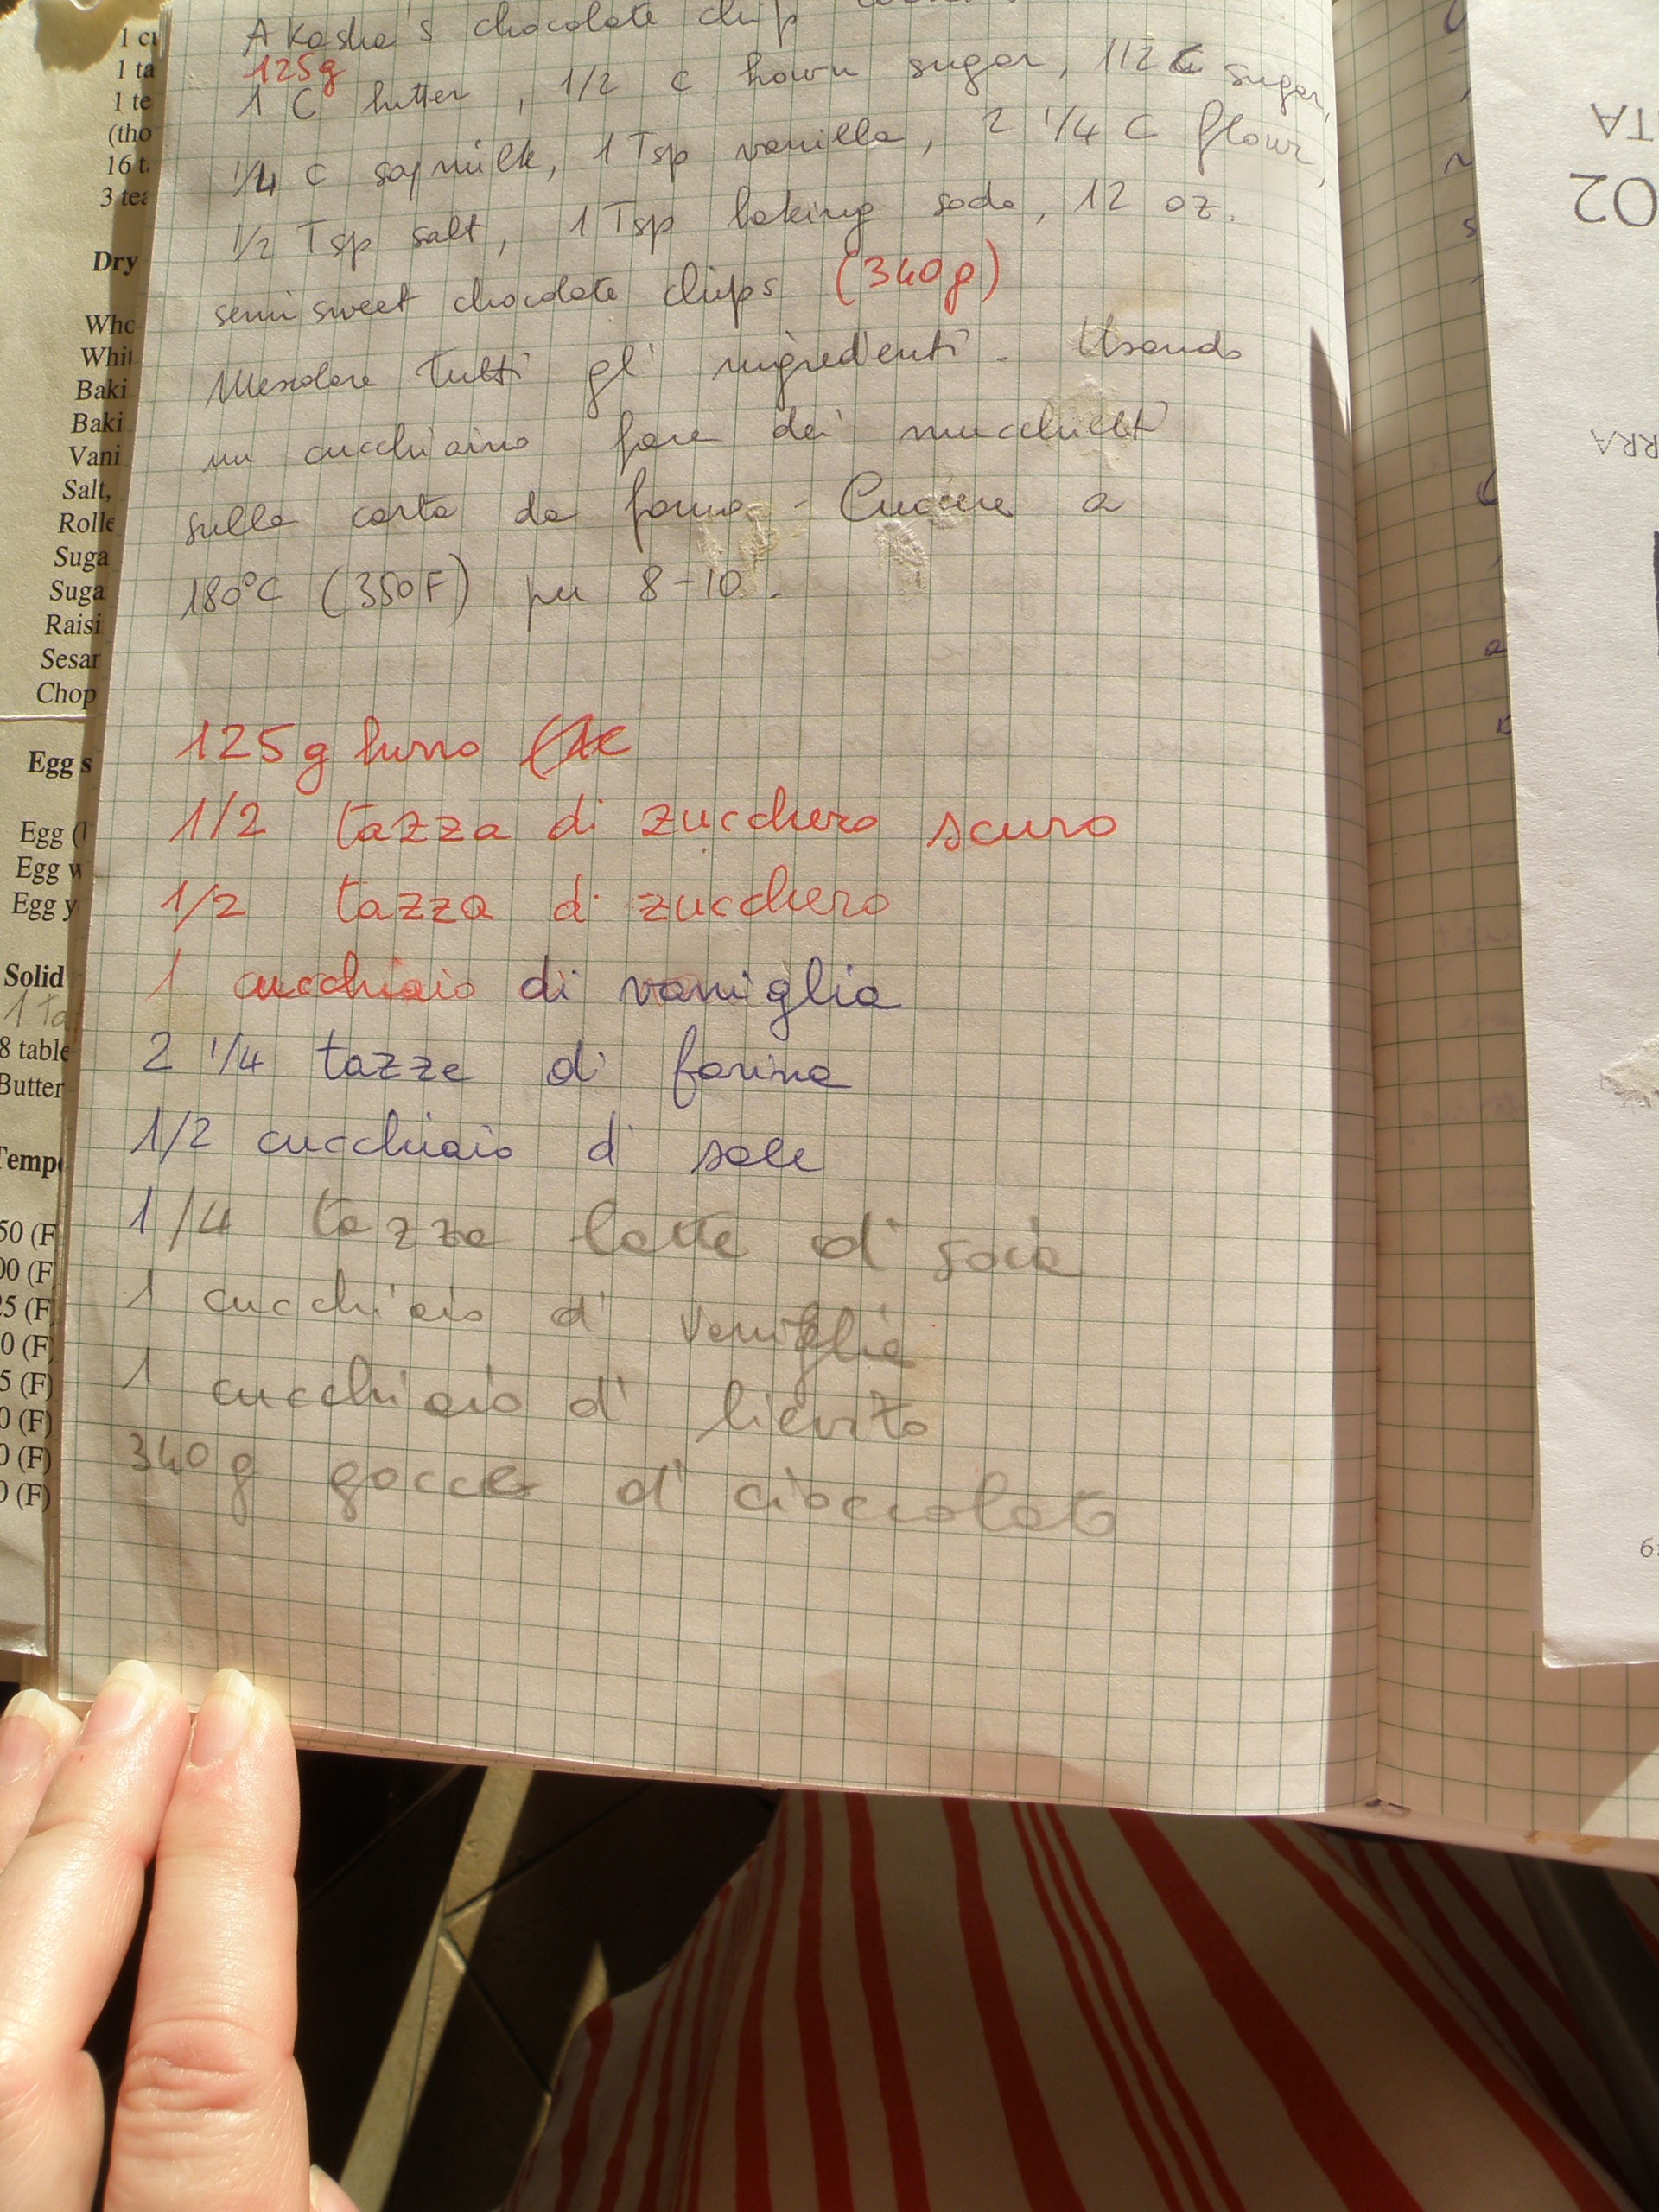 Akasha's chocolate chip
125g
1 C butter, 1/2 c brown sugar, 1/2 C sugar,
1/4 C soymilk, 1 Tsp vanilla, 2 1/4 C flour,
1/2 Tsp salt, 1 Tsp baking soda, 12 oz.
semisweet chocolate chips (340g)
Mescolare tutti gli ingredienti. Usando
un cucchiaino fare dei mucchietti
sulla carta da forno - Cuocere a
180°C (350F) per 8-10.
125g burro
1/2 tazza di zucchero scuro
1/2 tazza di zucchero
1 cucchiaio di vaniglia
2 1/4 tazze di farina
1/2 cucchiaio di sale
1/4 tazza latte di soia
1 cucchiaio di vaniglia
1 cucchiaio di lievito
340g gocce di cioccolato
1 ta
1 te
(tho
16 t
3 tea
Dry
Who
Whit
Baki
Baki
Vani
Salt,
Rolle
Suga
Suga
Raisi
Sesar
Chop
Egg s
Egg (
Egg w
Egg y
Solid
1 Ta
8 table
Butter
Temp
50 (F
00 (F
25 (F
0 (F)
5 (F)
0 (F)
0 (F)
0 (F)
TA
02
RRA